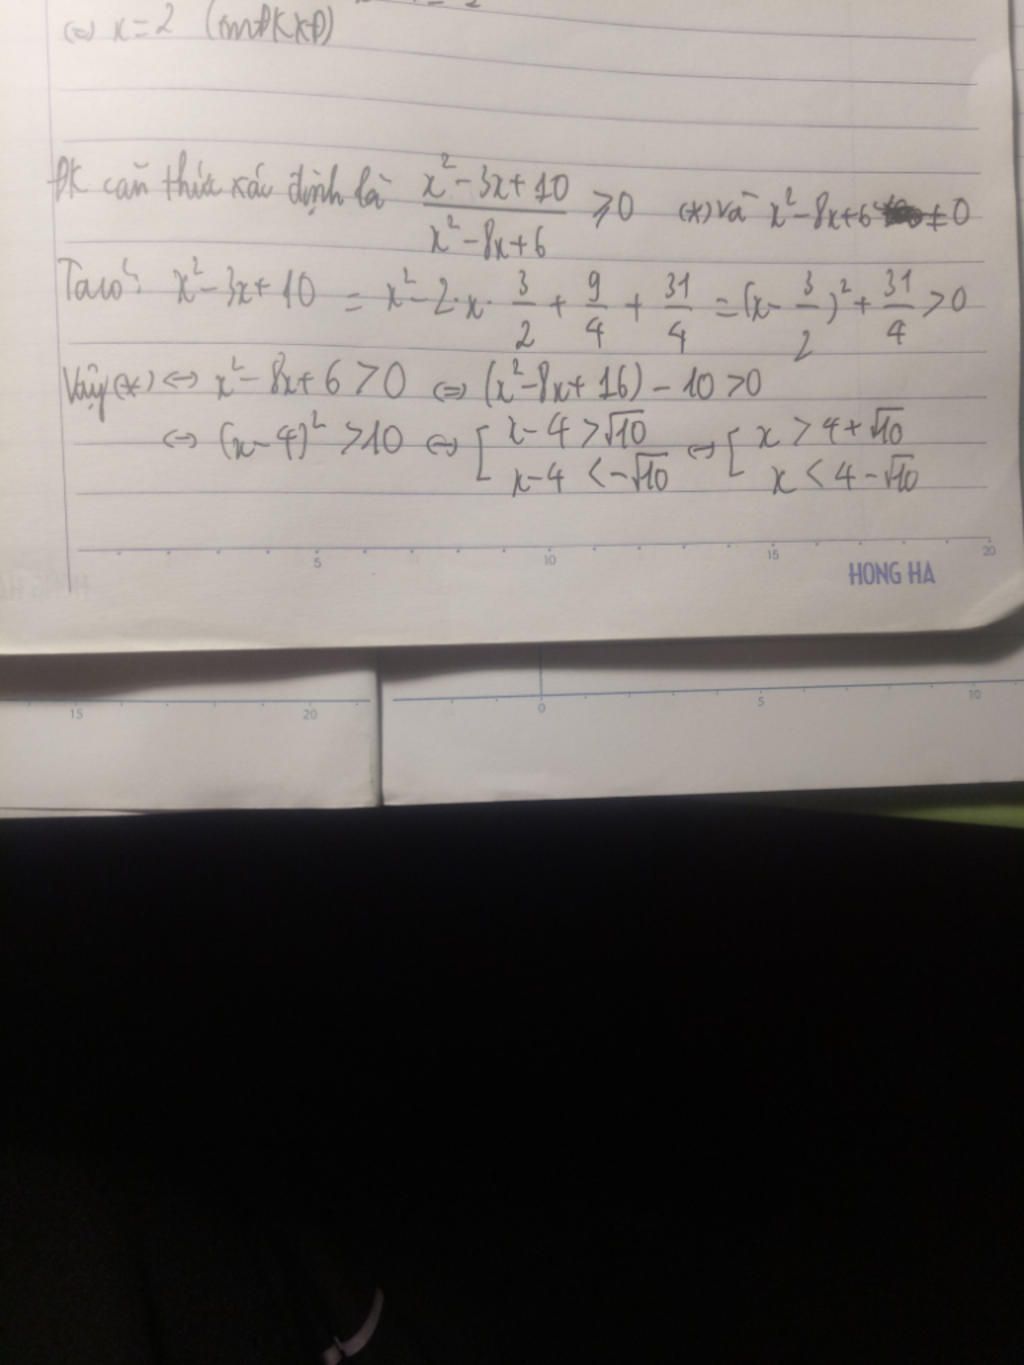 ⇔ x = 2 (tmĐKXĐ)
ĐK căn thức xác định là x² - 3x + 10 / x² - 8x + 6 ≥ 0 (*) và x² - 8x + 6 ≠ 0
Ta có: x² - 3x + 10 = x² - 2·x·3/2 + 9/4 + 31/4 = (x - 3/2)² + 31/4 > 0
Vậy (*) ⇔ x² - 8x + 6 > 0 ⇔ (x² - 8x + 16) - 10 > 0
⇔ (x - 4)² > 10 ⇔ [ x - 4 > √10 ⇔ [ x > 4 + √10
x - 4 < -√10 x < 4 - √10
5 10 15 20
HONG HA
15 20 0 5 10